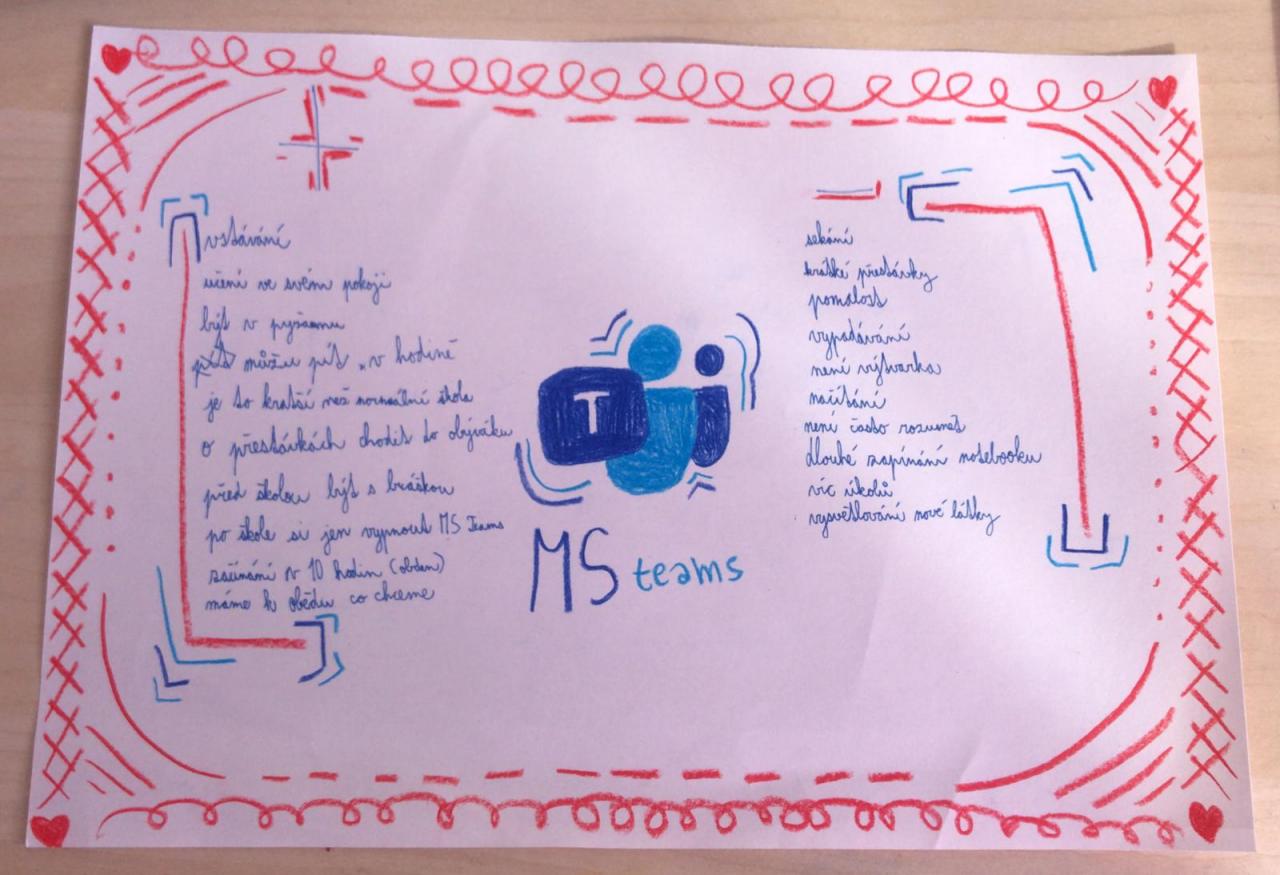 +
vstávání
učení ve svém pokoji
být v pyžamu
můžu pít v hodině
je to kratší než normální škola
o přestávkách chodit do obýváku
před školou být s bráškou
po škole si jen vypnout MS Teams
začínání v 10 hodin (obden)
máme k obědu co chceme
T
MS teams
-
sekání
krátké přestávky
pomalost
vypadávání
není výtvarka
načítání
není často rozumět
dlouhé zapínání notebooku
víc úkolů
vysvětlování nové látky